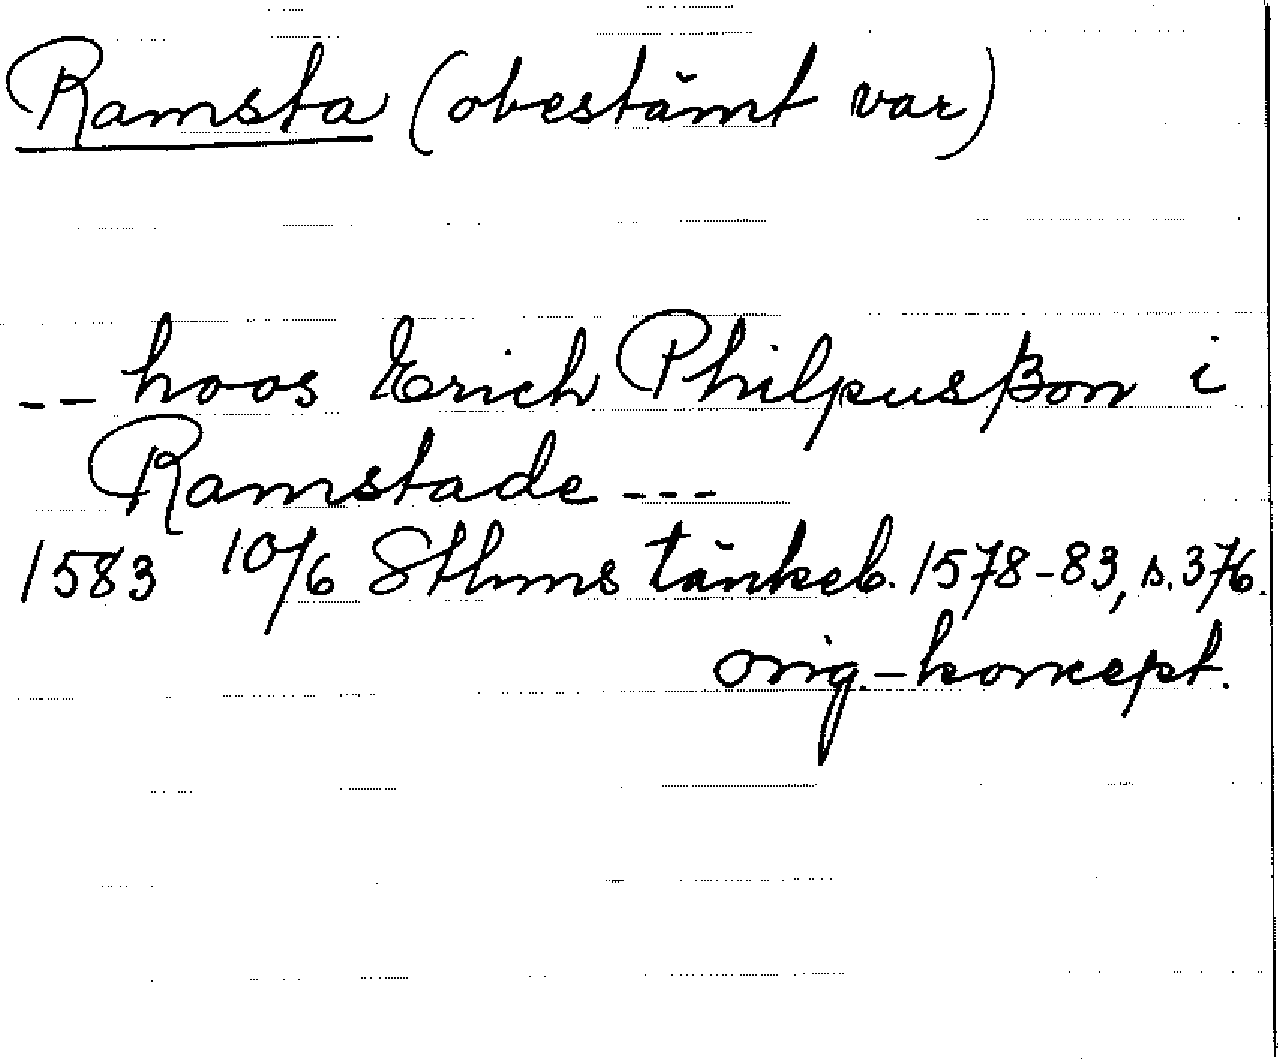 Ramsta (obestämt var)
-- hoos Erich Philpusßon i
Ramstade ---
1583 10/6 Sthms tänkeb. 1578-83, s. 376.
orig.-koncept.